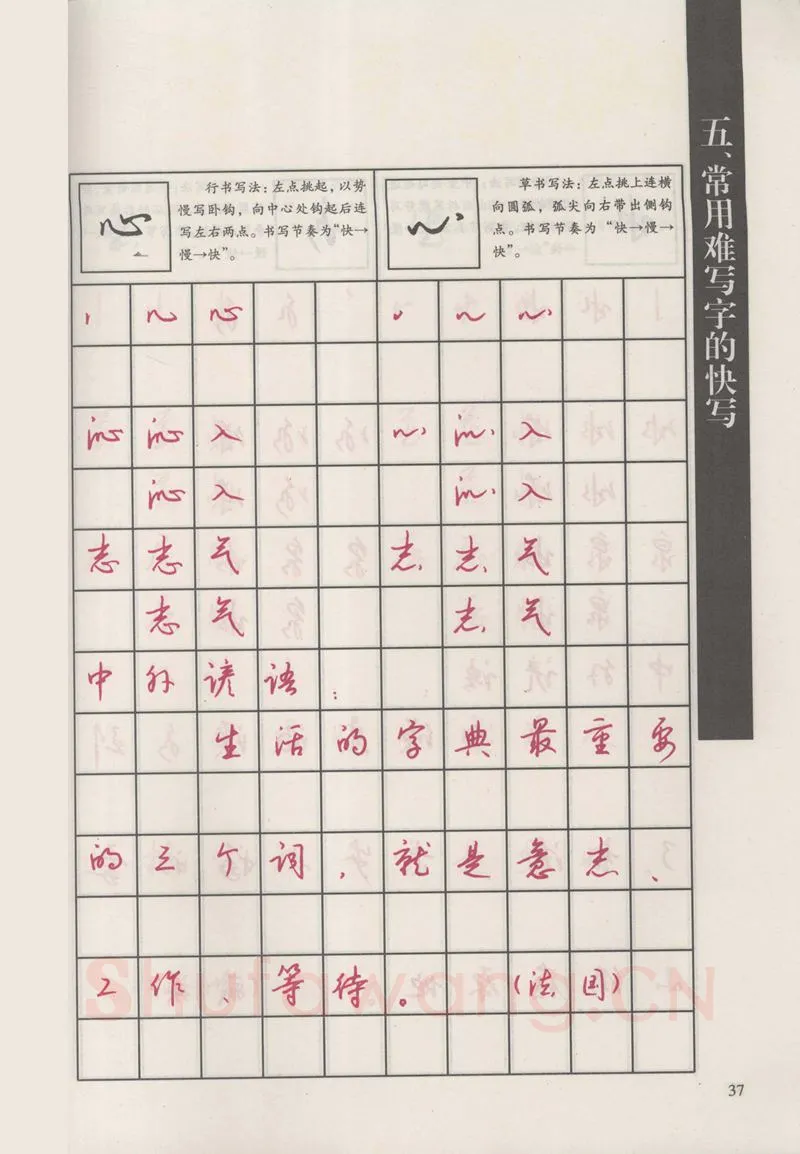 五、常用难写字的快写
心
行书写法：左点挑起，以势
慢写卧钩，向中心处钩起后连
写左右两点。书写节奏为“快→
慢→快”。
心
草书写法：左点挑上连横
向圆弧，弧尖向右带出侧钩
点。书写节奏为“快→慢→
快”。
心 心
沁 沁 入 心 沁 入
沁 入 沁 入
志 志 气 志 志 气
志 气 志 气
中 外 谚 语 ：
生 活 的 字 典 最 重 要
的 三 个 词 ， 就 是 意 志 、
工 作 、 等 待 。 （法 国）
Shufawang.CN
37